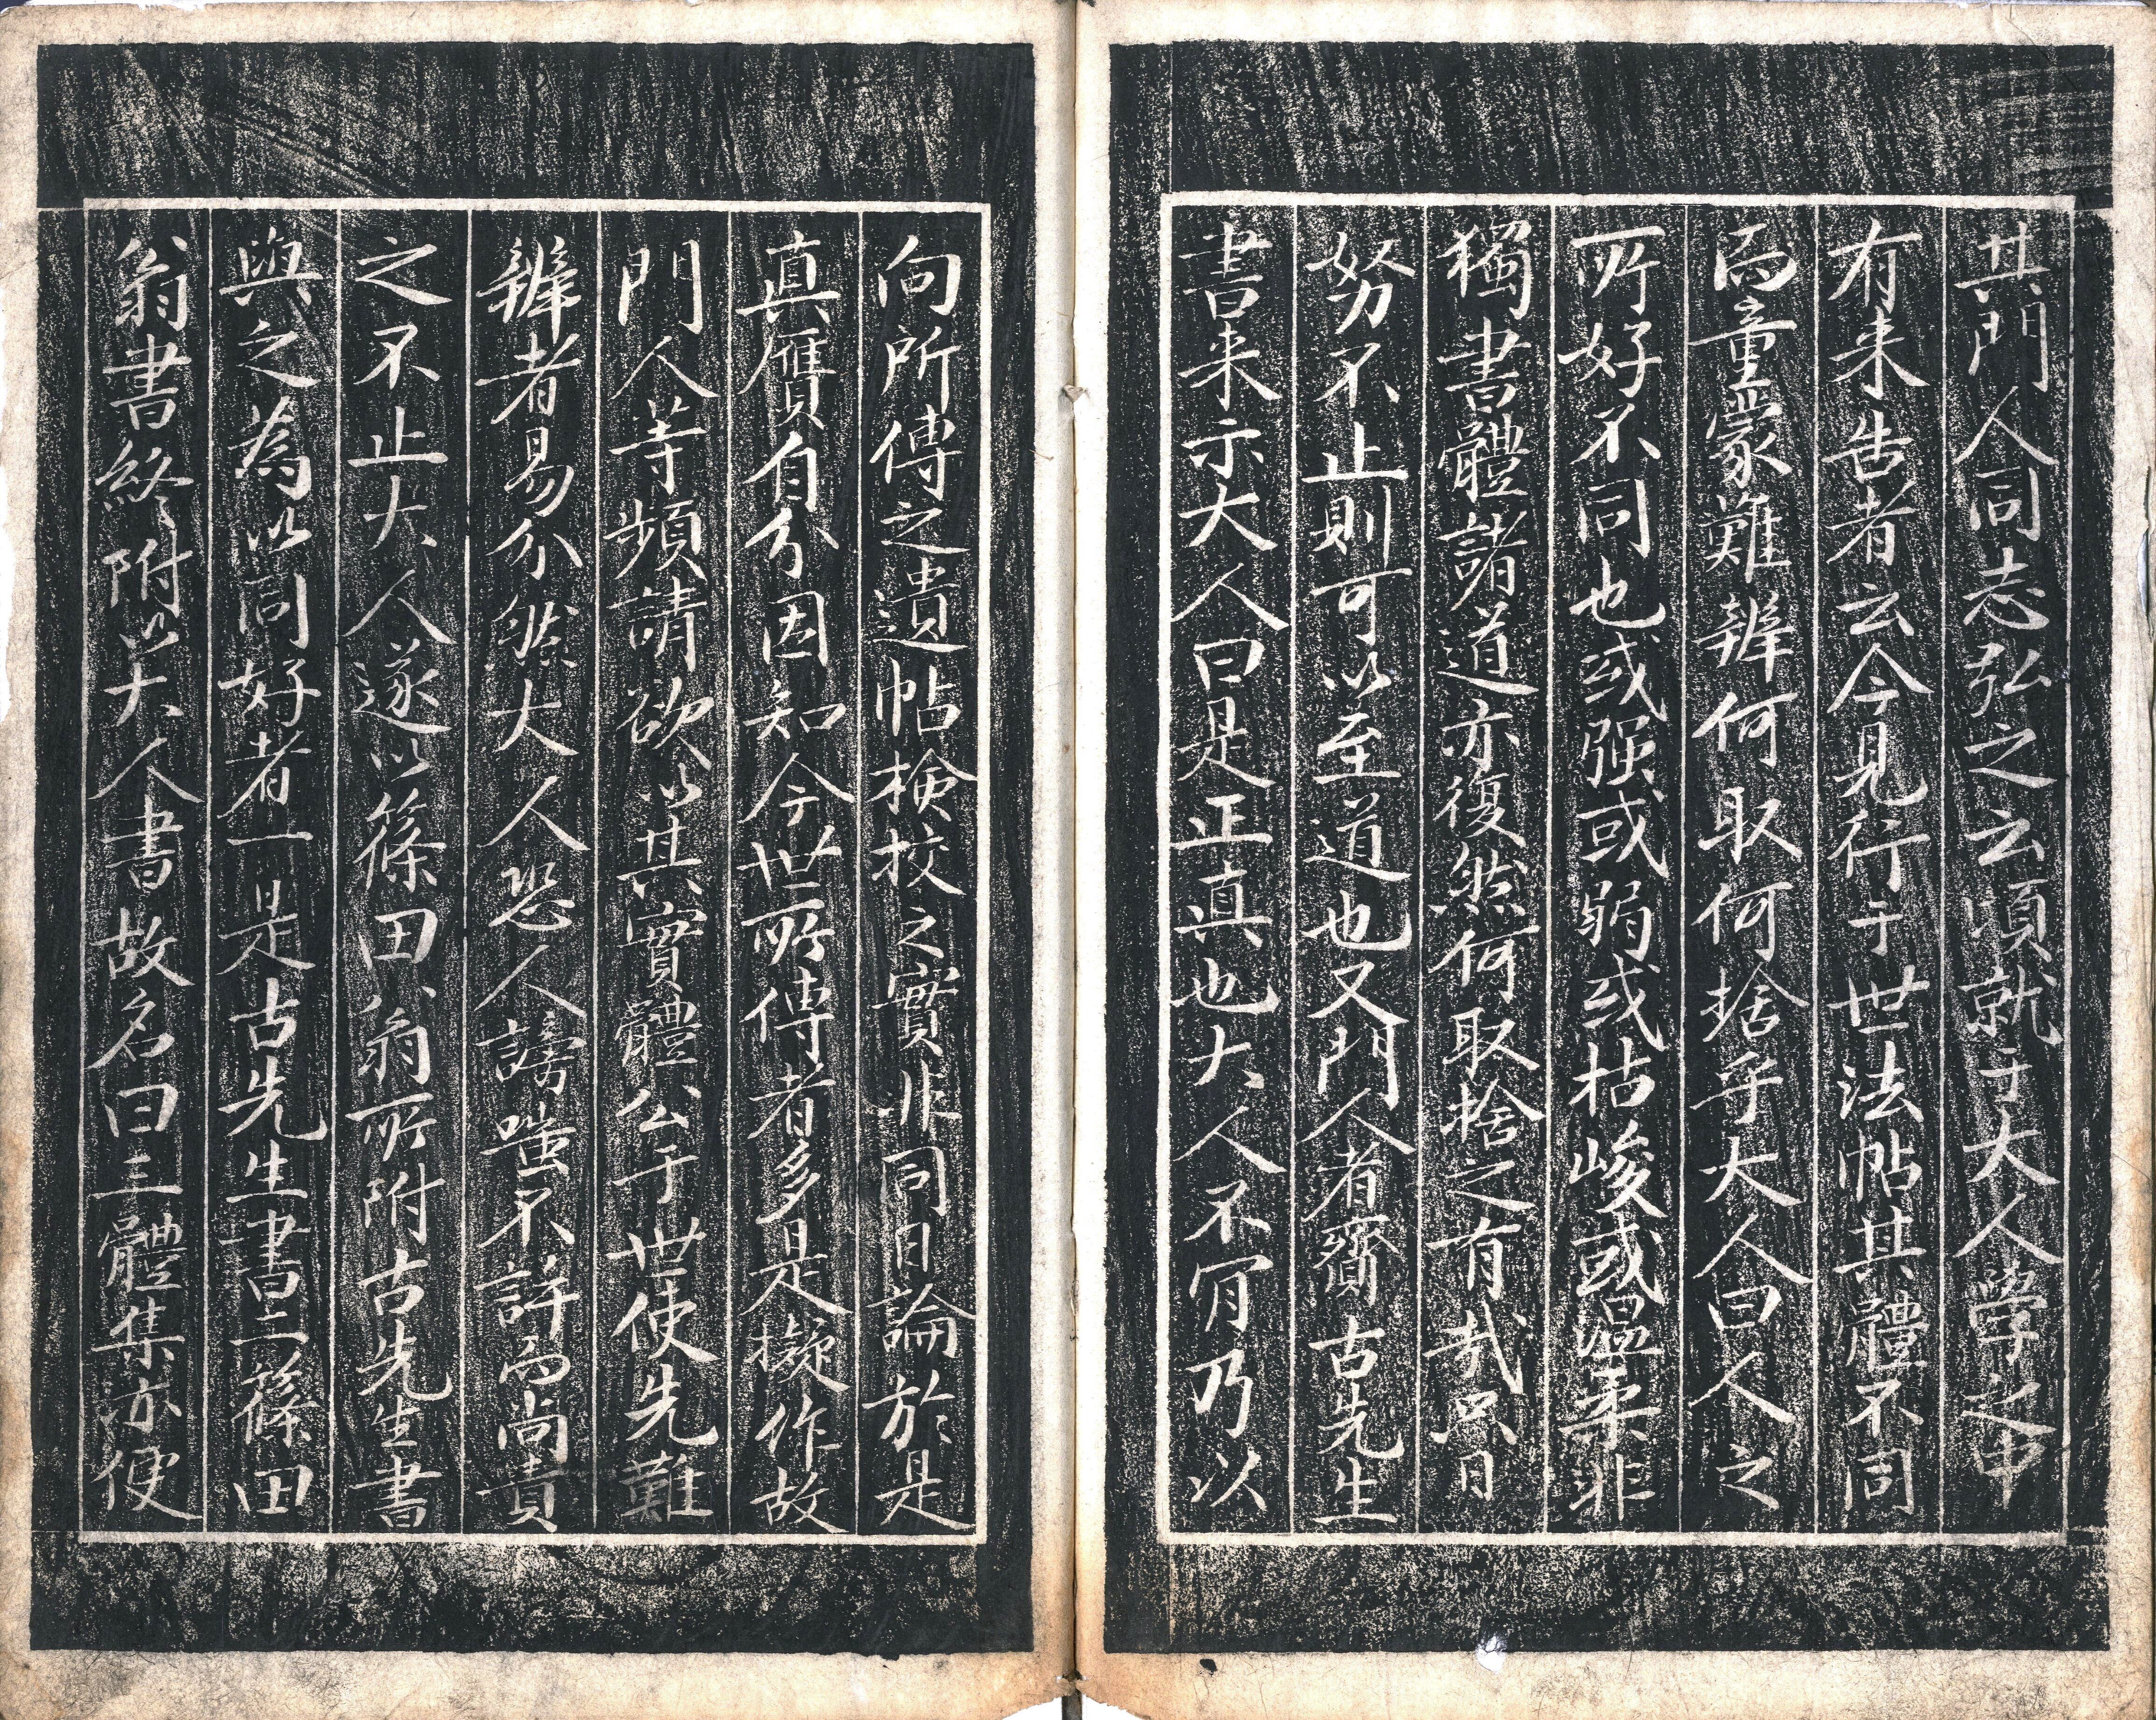 其門人同志弘之云頃就于大人學之中
有来告者云今見行于世法帖其體不同
而童蒙難辨何取何捨乎大人曰人之
所好不同也或强或弱或枯峻或温柔非
獨書體諸道亦復然何取捨之有哉只日
努不止則可以至道也又門人者齎古先生
書来示大人曰是正真也大人不肯乃以
向所傳之遺帖検校之實非同日論於是
真贋自分因知今世所傳者多是擬作故
門人等頻請欲以其實體公于世使先難
辨者易分然大人恐人謗嗤不許而尚責
之不止大人遂以篠田翁所附古先生書
與之為以同好者一是古先生書二篠田
翁書終附以大人書故名曰三體集亦便